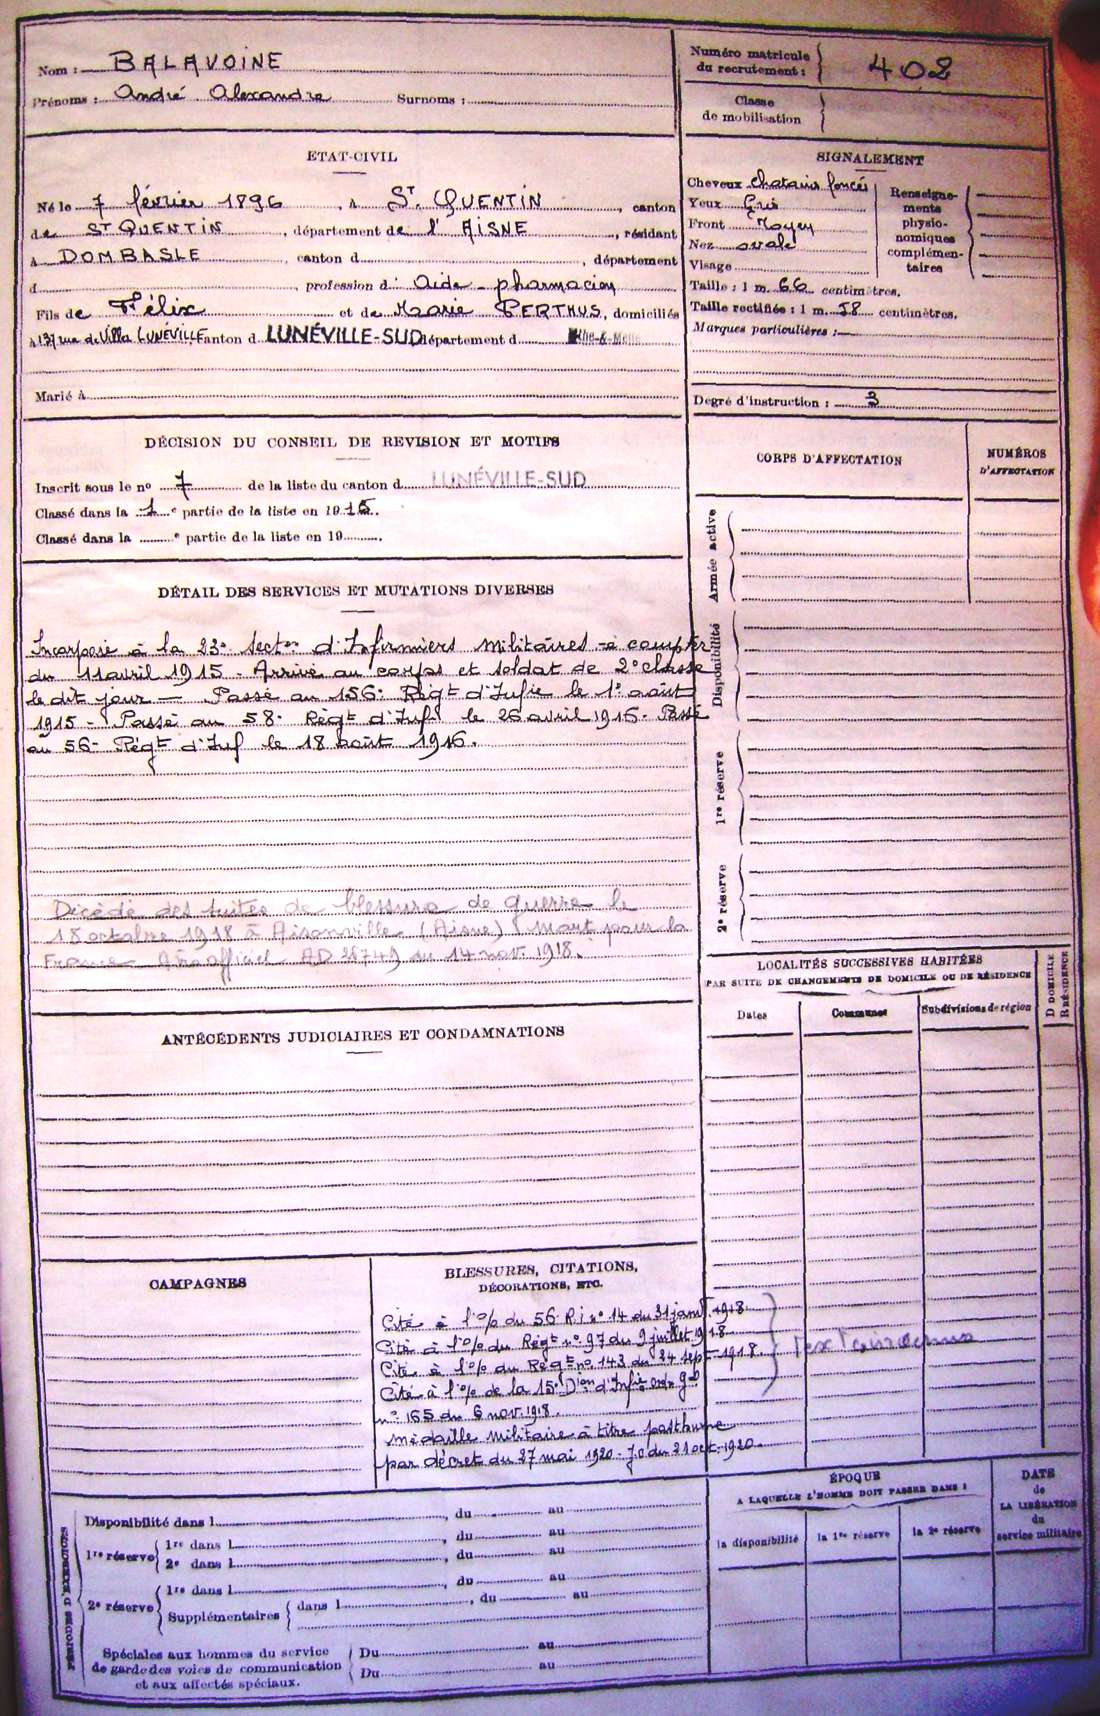 Nom : BALAVOINE
Prénoms : André Alexandre Surnoms :
Numéro matricule
du recrutement : 402
Classe
de mobilisation
ETAT-CIVIL
Né le 7 février 1896, à St QUENTIN, canton
de St QUENTIN, département de l'AISNE, résidant
à DOMBASLE, canton d, département
d, profession d: Aide-pharmacien
Fils de Félix et de Marie PERTHUS, domiciliés
à 137 rue de Villa LUNÉVILLE, canton d LUNÉVILLE-SUD département d Mthe-&-Melle
Marié à
SIGNALEMENT
Cheveux chatains foncés
Yeux Gris
Front Moyen
Nez ovale
Visage
Renseigne-
ments
physio-
nomiques
complémen-
taires
Taille : 1 m. 66 centimètres.
Taille rectifiée : 1 m. 58 centimètres.
Marques particulières :
Degré d'instruction : 3
DÉCISION DU CONSEIL DE REVISION ET MOTIFS
Inscrit sous le no 7 de la liste du canton d LUNÉVILLE-SUD
Classé dans la 1e partie de la liste en 1915.
Classé dans la e partie de la liste en 19 .
CORPS D'AFFECTATION
NUMÉROS
D'AFFECTATION
Armée active
Disponibilité
1re réserve
2e réserve
DÉTAIL DES SERVICES ET MUTATIONS DIVERSES
Incorporé à la 23e secton d'Infirmiers militaires à compter
du 11 avril 1915 - Arrivé au corps et soldat de 2e classe
le dit jour — Passé au 156e Régt d'Infie le 1er août
1915 - Passé au 58e Régt d'Infie le 26 avril 1916 - Passé
au 56e Régt d'Inf le 18 août 1916.
Décédé des suites de blessures de guerre le
18 octobre 1918 à Aisonville (Aisne) Mort pour la
France AD 28749 du 14 nov. 1918.
LOCALITÉS SUCCESSIVES HABITÉES
PAR SUITE DE CHANGEMENTS DE DOMICILE OU DE RÉSIDENCE
Dates
Communes
Subdivisions de région
D DOMICILE
R RÉSIDENCE
ANTÉCÉDENTS JUDICIAIRES ET CONDAMNATIONS
CAMPAGNES
BLESSURES, CITATIONS,
DÉCORATIONS, ETC.
Cité à l'o/o du 56 R.i no 14 du 31 janvr. 1918
Cité à l'o/o du Régt no 97 du 9 juillet 1918
Cité à l'o/o du Régt no 143 du 24 sept. 1918.
Cité à l'o/o de la 15e Dion d'Infie ordre gal
no 165 du 6 nov. 1918.
Médaille Militaire à titre posthume
par décret du 27 mai 1920 - J.O du 21 oct. 1920.
PÉRIODES D'EXERCICES
Disponibilité dans l, du au
1re réserve
1re dans l, du au
2e dans l, du au
2e réserve
1re dans l, du au
Supplémentaires dans l, du au
Spéciales aux hommes du service
de garde des voies de communication
et aux affectés spéciaux.
Du au
Du au
ÉPOQUE
A LAQUELLE L'HOMME DOIT PASSER DANS :
la disponibilité
la 1re réserve
la 2e réserve
DATE
de
LA LIBÉRATION
du
service militaire